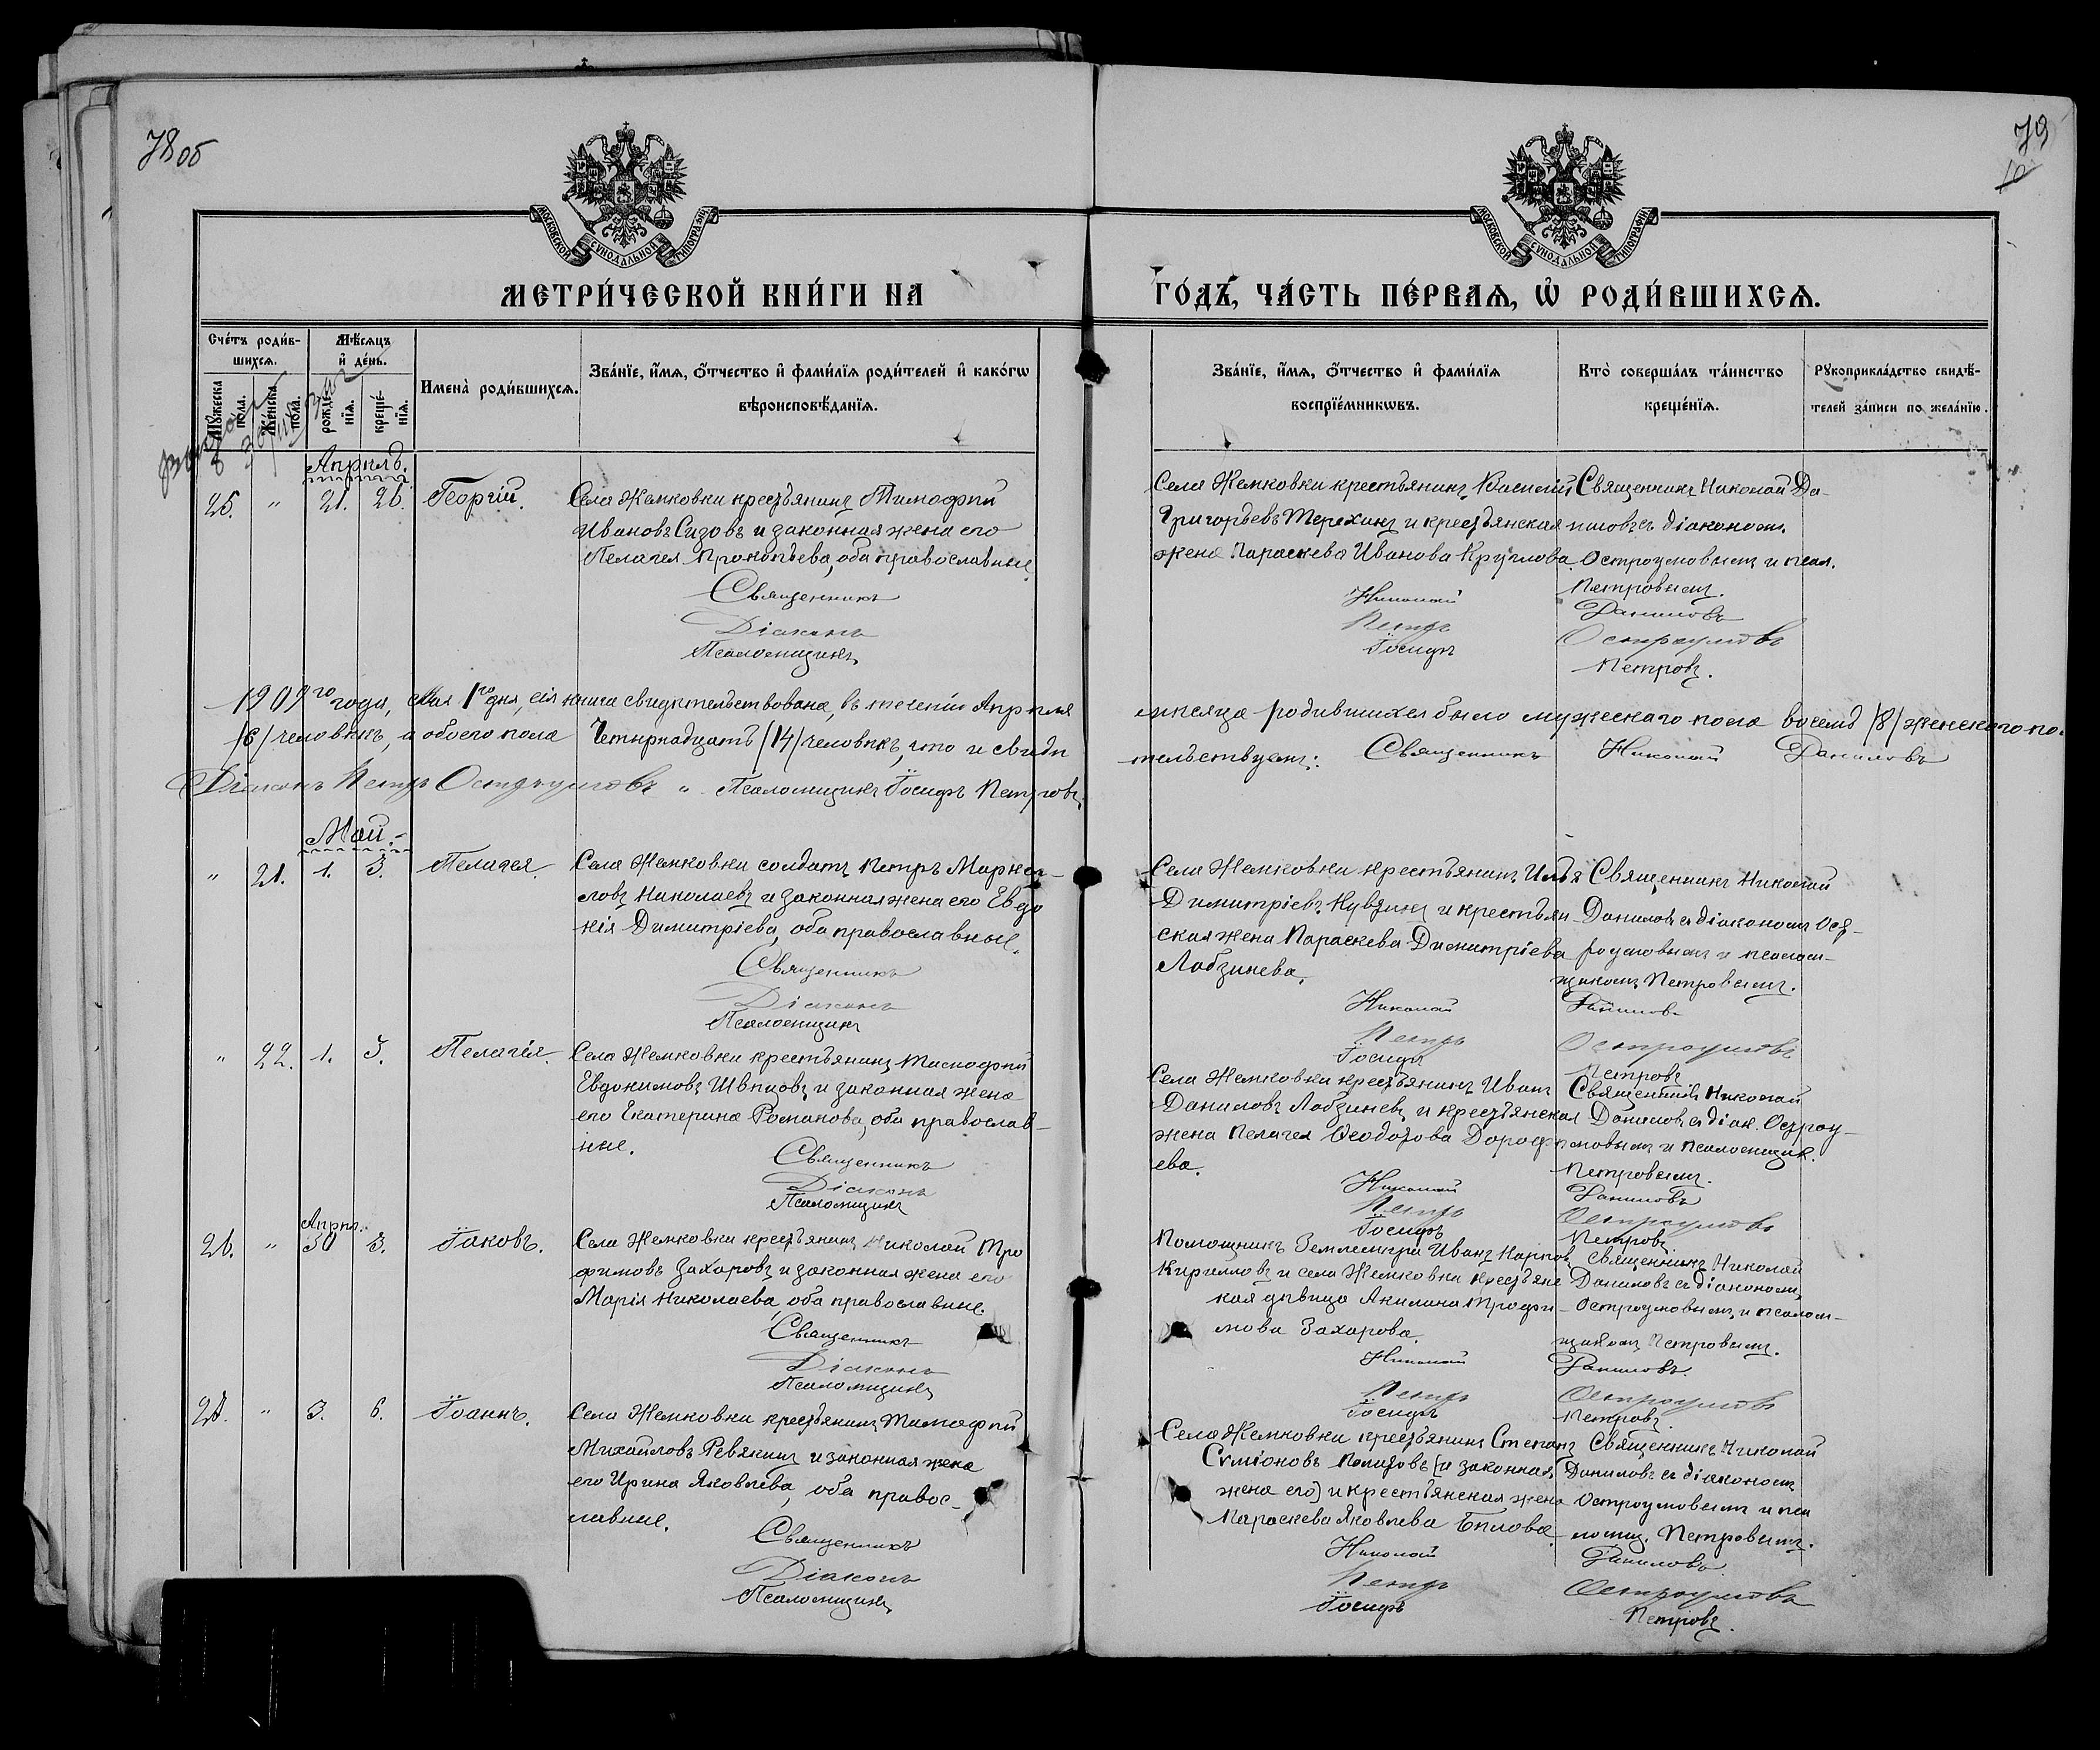 78 об
79
10
МОСКОВСКОЙ СУНОДАЛЬНОЙ ТИПОГРАФІИ
МОСКОВСКОЙ СУНОДАЛЬНОЙ ТИПОГРАФІИ
МЕТРИ́ЧЕСКОЙ КНИ́ГИ НА
ГО́ДЪ, ЧА́СТЬ ПЕ́РВАѦ, Ѽ РОДИ́ВШИХСѦ.
Сче́тъ роди́в-
шихсѧ.
Мꙋ́жеска пола.
Же́нска пола.
Мѣ́сѧцъ
и҆ де́нь.
рожде́-
нїѧ.
креще́-
нїѧ.
И҆мена̀ роди́вшихсѧ.
Зва́нїе, и҆́мѧ, ѻ҆́тчество и҆ фами́лїѧ роди́телей и҆ како́гѡ
вѣроисповѣ́данїѧ.
Зва́нїе, и҆́мѧ, ѻ҆́тчество и҆ фами́лїѧ
воспрїе́мникѡвъ.
Кто̀ соверша́лъ та́инство
креще́нїѧ.
Рꙋкоприкла́дство свидѣ́-
телей за́писи по жела́нїю.
Апрѣль.
25. " 21. 26. Георгій.
Села Жемковки крестьянинъ Тимофей
Ивановъ Сизовъ и законная жена его
Пелагея Прокопьева, оба православные.
Священникъ
Діаконъ
Псаломщикъ
Села Жемковки крестьянинъ Василій
Григорьевъ Терехинъ и крестьянская
жена Параскева Иванова Круглова.
Николай
Петръ
Іосифъ
Священникъ Николай Да-
ниловъ съ діакономъ
Остроумовымъ и псал.
Петровымъ.
Даниловъ
Остроумовъ
Петровъ.
1909го года, Мая 1го дня, сія книга свидѣтельствована, въ теченіи Апрѣля
мѣсяца родившихся было мужескаго пола восемь /8/ женскаго по-
/6/ человѣкъ, а обоего пола Четырнадцать /14/ человѣкъ, что и свидѣ
тельствуемъ: Священникъ Николай Даниловъ
Діаконъ Петръ Остроумовъ " Псаломщикъ Іосифъ Петровъ.
Май.
" 21. 1. 3. Пелагея.
Села Жемковки солдатъ Петръ Маркел-
ловъ Николаевъ и законная жена его Евдо
кія Димитріева, оба православные.
Священникъ
Діаконъ
Псаломщикъ
Села Жемковки крестьянинъ Илья
Димитріевъ и крестьян
ская жена Параскева Димитріева
Лабзинева.
Николай
Петръ
Іосифъ
Священникъ Николай
Даниловъ съ діакономъ Ост-
роумовымъ и псалом-
щикомъ Петровымъ.
Даниловъ
Остроумовъ
Петровъ
" 22. 1. 3. Пелагея.
Села Жемковки крестьянинъ Тимофей
Евдокимовъ Швецовъ и законная жена
его Екатерина Романова, оба православ-
ные.
Священникъ
Діаконъ
Псаломщикъ
Села Жемковки крестьянинъ Иванъ
Даниловъ Лабзиневъ и крестьянская
жена Пелагея Ѳеодорова Дорофе
ева.
Николай
Петръ
Іосифъ
Священникъ Николай
Даниловъ съ діак. Остроу-
мовымъ и псаломщик.
Петровымъ.
Даниловъ
Остроумовъ
Петровъ
Апрѣл.
26. " 30 3. Іаковъ.
Села Жемковки крестьянинъ Николай Тро
фимовъ Захаровъ и законная жена его
Марія Николаева, оба православные.
Священникъ
Діаконъ
Псаломщикъ
Помощникъ Землемѣра Иванъ Карповъ
Кирилловъ и села Жемковки крестьянс
кая дѣвица Акилина Трофи-
мова Захарова.
Николай
Петръ
Іосифъ
Священникъ Николай
Даниловъ съ діакономъ
Остроумовымъ и псалом-
щикомъ Петровымъ.
Даниловъ.
Остроумовъ
Петровъ.
" 3. 6. Іоаннъ.
Села Жемковки крестьянинъ Тимофей
Михайловъ Ревякинъ и законная жена
его Ирина Яковлева, оба правос-
лавные.
Священникъ
Діаконъ
Псаломщикъ
Села Жемковки крестьянинъ Степанъ
Сумеоновъ (и законная
жена его) и крестьянская жена
Параскева Яковлева Бѣлова.
Николай
Петръ
Іосифъ
Священникъ Николай
Даниловъ съ діакономъ
Остроумовымъ и пса
ломщ. Петровымъ.
Даниловъ
Остроумовъ
Петровъ.